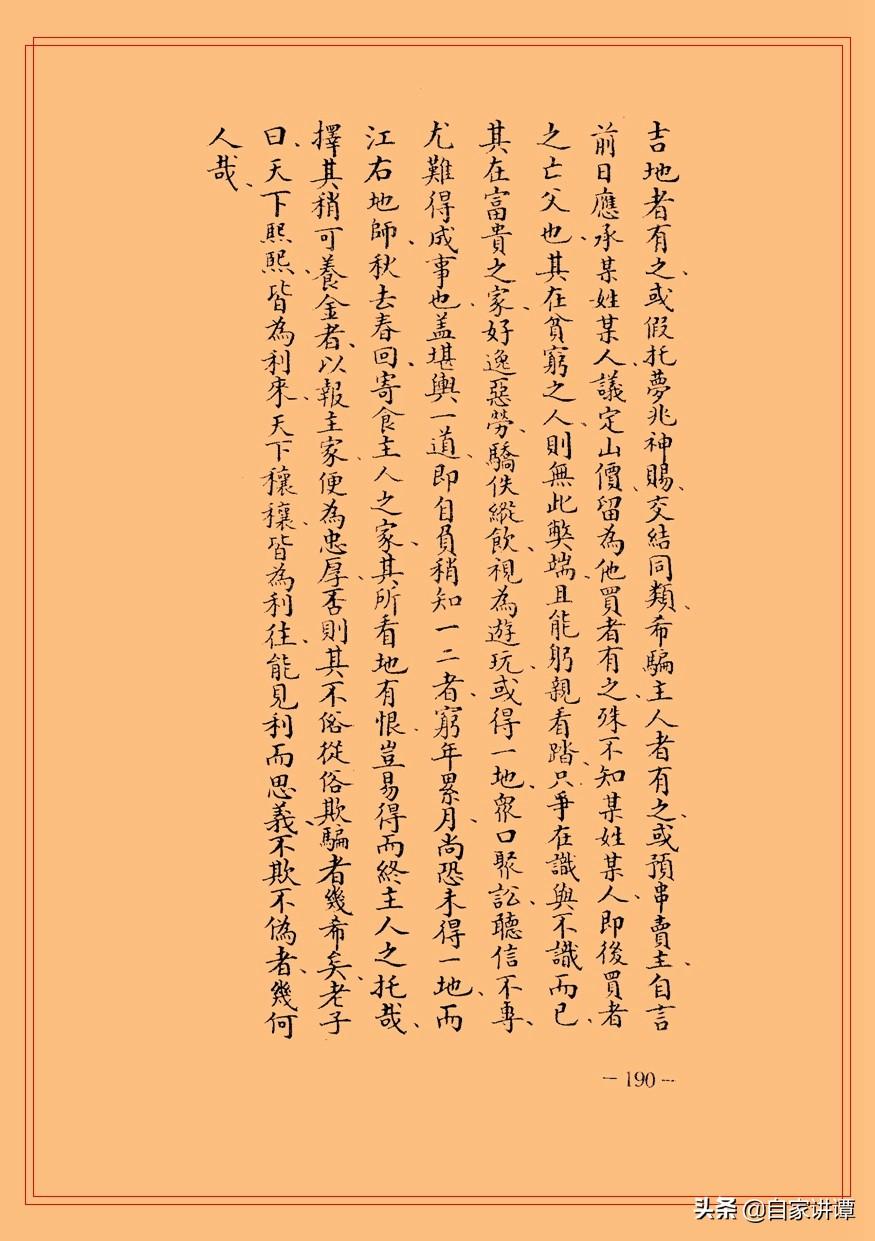 吉地者有之、或假托夢兆神賜、交結同類、希騙主人者有之、或預串賣主、自言
前日應承某姓某人、議定山價、留為他買者有之、殊不知某姓某人、即後買者
之亡父也、其在貧窮之人、則無此弊端、且能躬親看踏、只爭在識與不識而已、
其在富貴之家、好逸惡勞、驕佚縱飲、視為遊玩、或得一地、眾口聚訟、聽信不專、
尤難得成事也、盖堪輿一道、即自負稍知一二者、窮年累月、尚恐未得一地、而
江右地師、秋去春回、寄食主人之家、其所看地有恨、豈易得而終主人之托哉、
擇其稍可養金者、以報主家、便為忠厚、否則其不俗從俗欺騙者幾希矣、老子
曰、天下熙熙、皆為利來、天下穰穰、皆為利往、能見利而思義、不欺不偽者、幾何
人哉、
－190－
头条 @自家讲谭